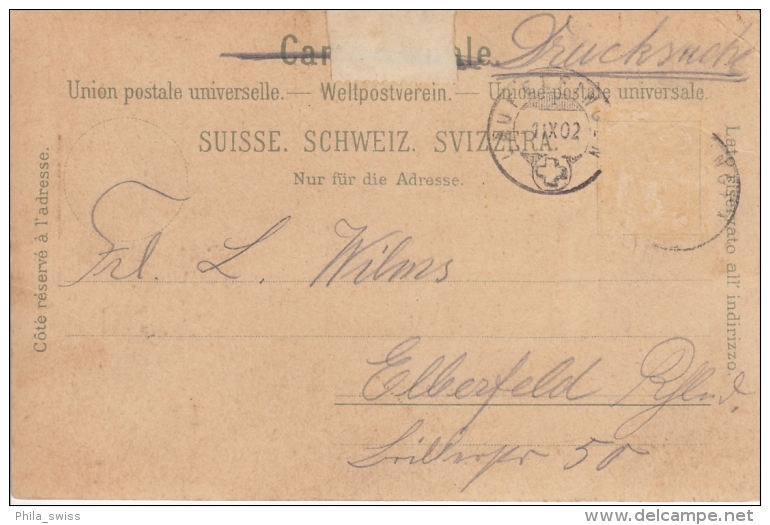 Drucksache
Union postale universelle. — Weltpostverein. — Unione postale universale.
SUISSE. SCHWEIZ. SVIZZERA.
Nur für die Adresse.
Côté réservé à l'adresse.
Lato riservato all' indirizzo.
IX02
Frl. L. Wilms
Elberfeld Rhld.
50
Phila_swiss
delcampe.net